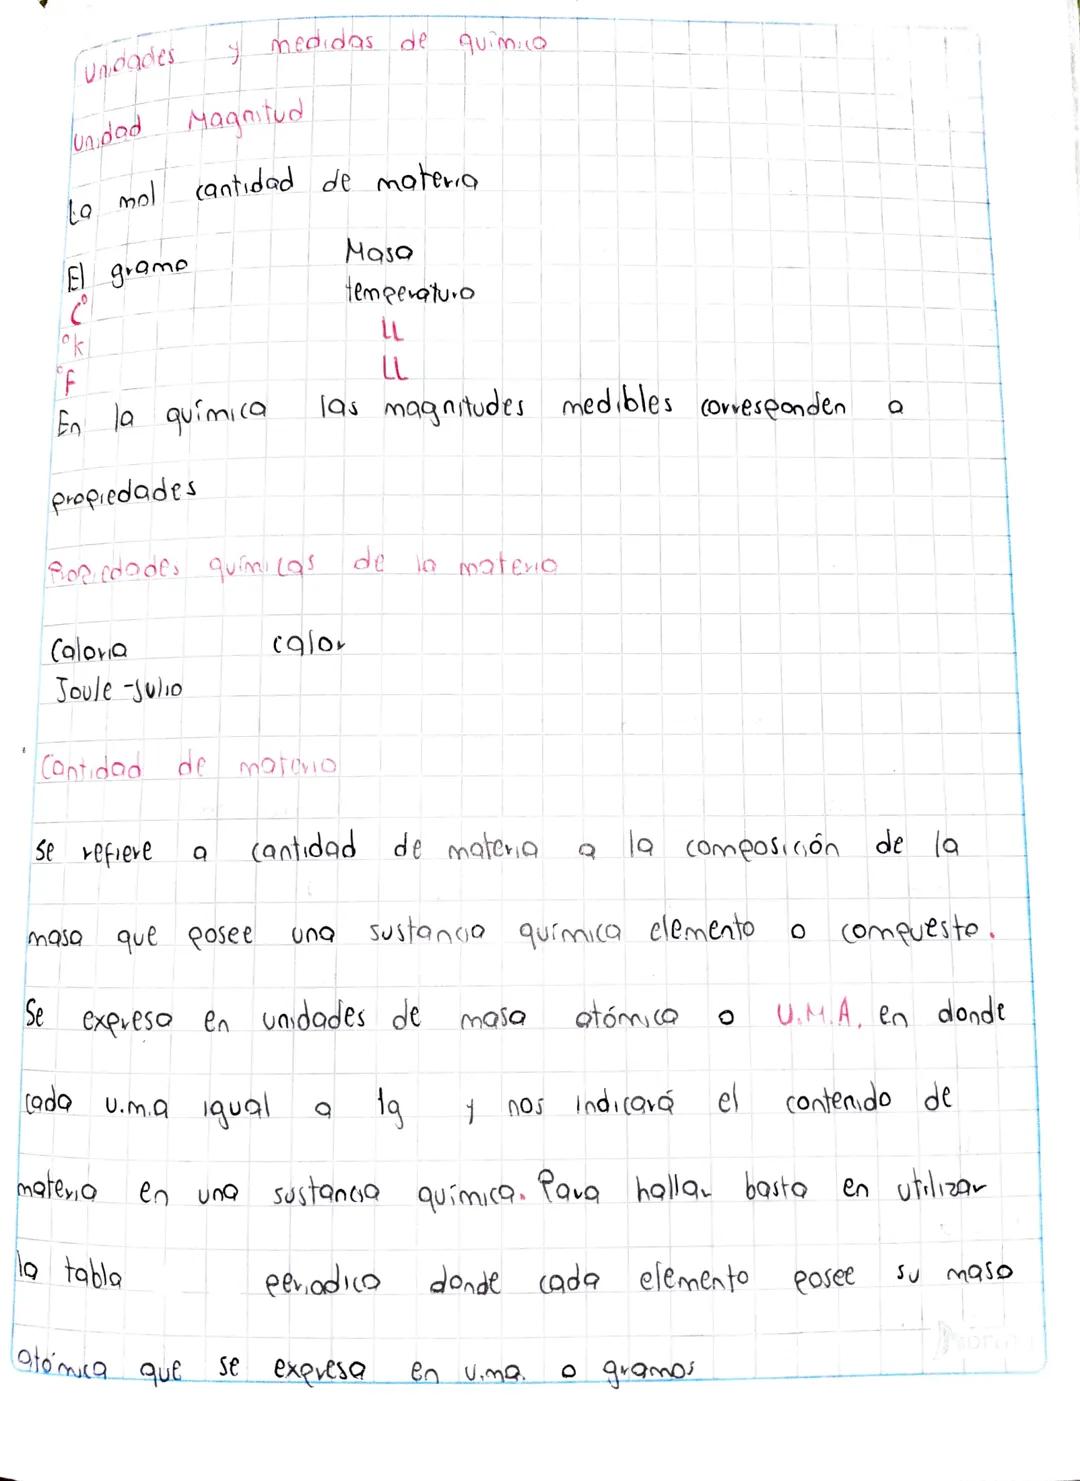 Unidades y medidas de químico
Unidad Magnitud
La mol cantidad de materia
El gramo Masa
C° temperatura
°k LL
°F LL
En la química las magnitudes medibles corresponden a
propiedades
Propiedades químicas de la materia
Caloria calor
Joule - Julio
Cantidad de materia
se refiere a cantidad de materia a la composición de la
masa que posee una sustancia química elemento o compuesto.
Se expresa en unidades de masa atómica o U.M.A. en donde
cada u.m.a igual a 1g y nos indicará el contenido de
materia en una sustancia química. Para hallar basta en utilizar
la tabla periodica donde cada elemento posee su masa
atómica que se expresa en u.ma. o gramos